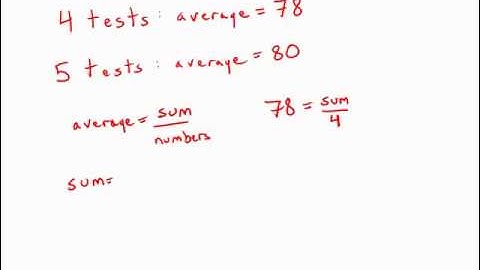 4 tests: average = 78
5 tests: average = 80
average = sum/numbers
78 = sum/4
sum=